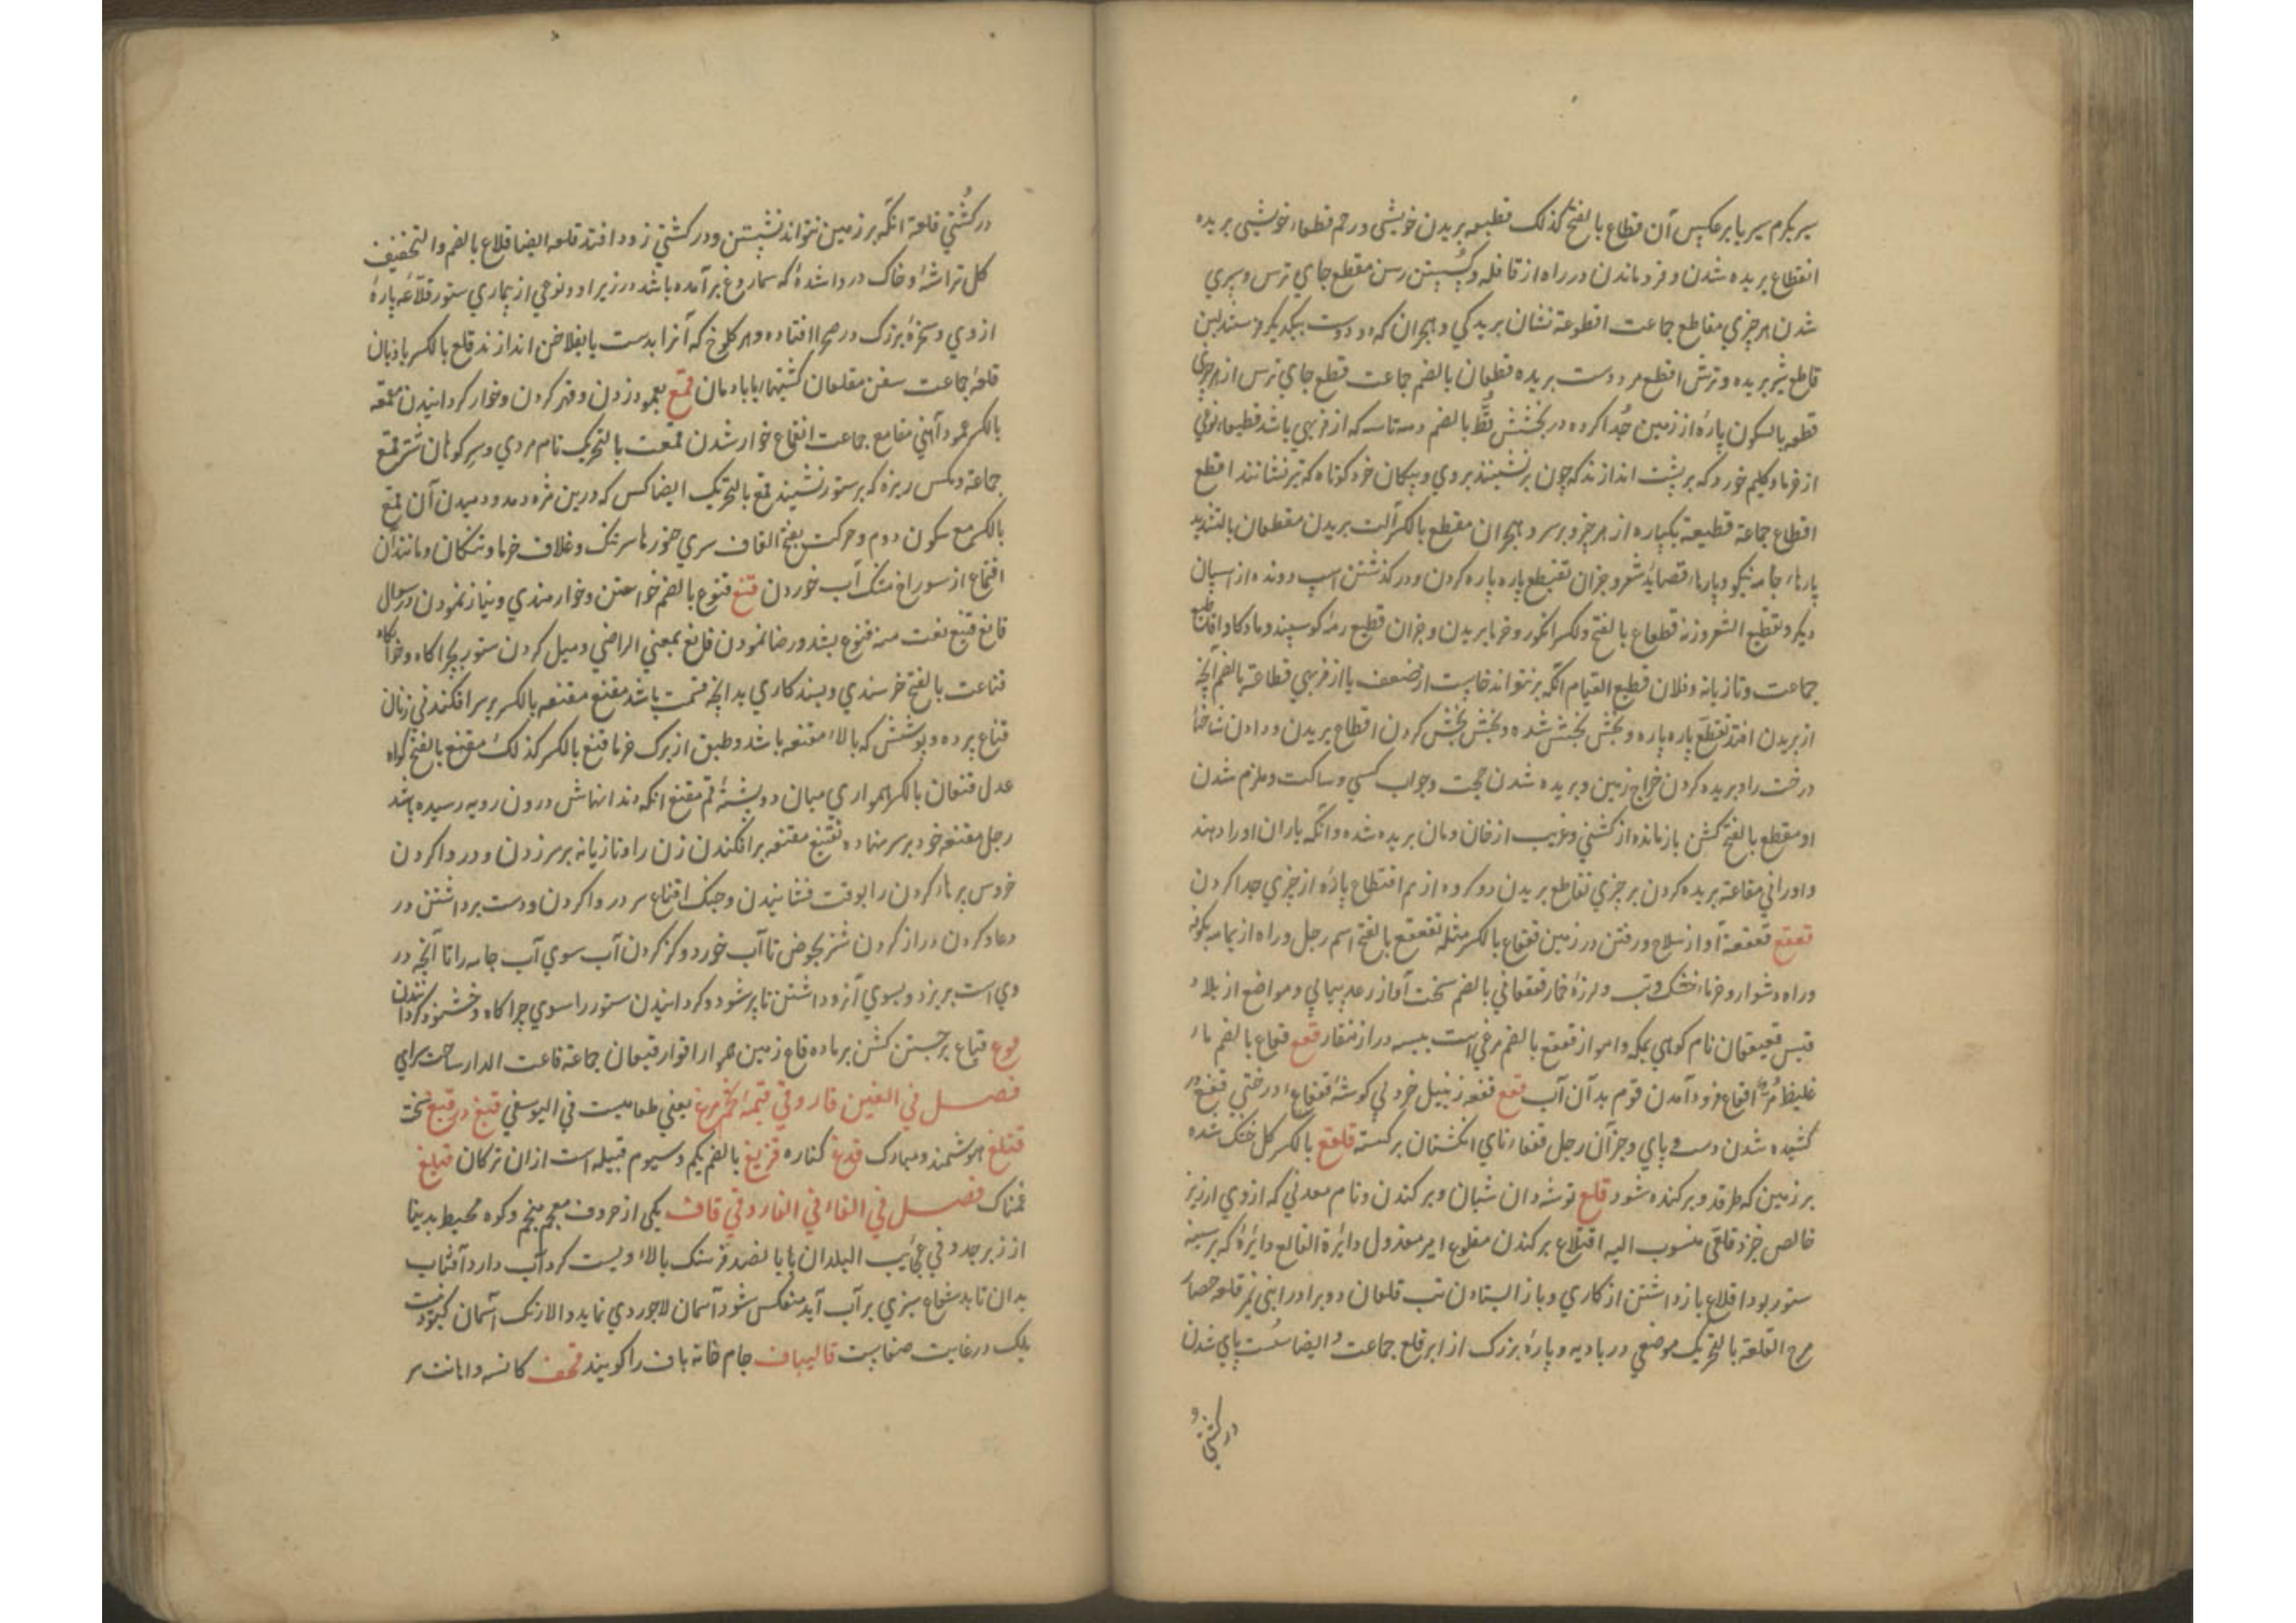 سیر بکرم سیر یا بر عکس آن قطاع بالفتح کذلک قطیعه بریدن خویشی و رحم قطعاء خویشی بریده
انقطاع بریده شدن و فرو ماندن در راه از قافله و کسستن رسن مقطع جای ترس و سپری
شدن هر چیزی مقاطع جماعت اقطوعة نشان بریدکی و هجران که دو دوست بیکدیکر فرستند لبن
قاطع شیر بریده و ترش اقطع مرد دست بریده قطعان بالضم جماعت قطع جای ترس از هر چیزی
قطعه بالسکون پارهٔ از زمین جدا کرده در بخشش قط بالضم دمه تاسه که از فربهی باشد قطیعاء نوعی
از خرما و کلیم خورد که بر پشت اندازند که چون بر نشینند بروی و پیکان خرد کوتاه که تیر نشانند اقطع
اقطاع جماعة قطیعة یکپاره از هر چیز و برسر و هجران مقطع بالکسر آلت بریدن مقطعات بالتشدید
پارهاء جامه نیکو و پارهاء قصاید شعر و جز آن تقطیع پاره پاره کردن و در کذشتن اسپ دونده از اسپان
دیکر و تقطیع الشعر وزنه قطعاع بالفتح ولکسر انکور و خرما بریدن و جز آن قطیع رمهٔ کوسپند و ماده کاو اقاطیع
جماعت و تازیانه و فلان قطیع القیام انکه بر نتواند خاست از ضعف یا از فربهی قطاعة بالضم آنچه
از بریدن افتد تقطع پاره پاره و بخش بخش شده و بخش بخش کردن اقطاع بریدن و دادن شاخها
درخت را و بریده کردن خراج زمین و بریده شدن حجت و جواب کسی و ساکت و ملزم شدن
او مقطع بالفتح کشن بازمانده از کشنی و غریب از خان و مان بریده شده و انکه یاران او را دهند
و او را نی مقاطعة بریده کردن بر چیزی تقاطع بریدن دو کروه از هم اقتطاع پارهٔ از چیزی جدا کردن
قعقع قعقعة آواز سلاح و رفتن در زمین قعقاع بالکسر مثله قعقع بالفتح اسم رجل و راه از یمامه بکوفه
و راه دشوار و خرماء خشک و تب و لرزهٔ خمار قعقعانی بالضم سخت آواز رعد پیاپی و مواضع از بلاد
قیس قعیقعان نام کوهی بمکه و اهواز قعقع بالضم مرغی است پیسه دراز منقار قعع قعاع بالضم ماء
غلیظ مر اقعاع فرود آمدن قوم بدآن آب قفع قفعه زنبیل خرد بی کوشهٔ قفعاء درختی قفع در
کشیده شدن دست و پای و جز آن رجل قفعاء تای انکشتان برکشته قلفع بالکسر کل خشک شده
بر زمین که طرقد و برکنده شود قلع توشه دان شبان و برکندن و نام معدنی که از وی ارزیز
خالص خیزد قلعی منسوب الیه اقتلاع برکندن مقلوع امیر معزول دایرة القالع دایرهٔ که بر سینه
ستور بود اقلاع باز داشتن از کاری و باز ایستادن تب قلعان دو برادر ابنی نمیر قلعه حصار
مرج القلعة بالتحریک موضعی در بادیه و پارهٔ بزرک از ابر قلع جماعت و ایضا سست پای شدن
در کشتی و
در کشتی قلعة انکه بر زمین نتواند نشستن و در کشتی زود افتد قلعه ایضا قلاع بالضم والتخفیف
کل تراشهٔ و خاک در وا شدهٔ که سماروغ بر آمده باشد در زیر او و نوعی از بیماری ستور قلاعه پارهٔ
از وی و سخرهٔ بزرک در صحرا افتاده و هر کلوخ که آنرا بدست یا بفلاخن اندازند قلع بالکسر بادبان
قلعه جماعت سفن مقلعات کشتیهاء با بادبان قمع بعمود زدن و قهر کردن و خوار کردانیدن مقمعه
بالکسر عمود آهنی مقامع جماعت انقماع خوار شدن قمعت بالتحریک نام مردی و سر کوهان شتر قمع
جماعة و مکس ریزه که بر ستور نشیند قمع بالتحریک ایضا کس که در بین مژه دمد و دمیدن آن قمع
بالکسر مع سکون دوم و حرکت بفتح القاف سری خنورها سر تنک و غلاف خرما و تنکان و مانند آن
اقتماع از سوراخ مشک آب خوردن قنع قنوع بالضم خواستن و خوارمندی و نیاز نمودن در سوال
قانع قنیع نعت منه قنوع بسند و رضا نمودن قانع بمعنی الراضی و میل کردن ستور بچراکاه و خوابکاه
قناعت بالفتح خرسندی و بسندکاری بدانچه قسمت باشد مقنع مقنعه بالکسر بر سر افکندنی زنان
قناع پرده و پوشش که بالاء مقنعه باشد و طبق از برک خرما قنع بالکسر کذلک مقنع بالفتح کواه
عدل قنعان بالکسر همواری میان دو پشتهٔ فم مقنع انکه دندانهاش درون رویه رسیده باشد
رجل مقنعه خود بر سر نهاده تقنیع مقنعه برافکندن زن را و تازیانه بر سر زدن و در وا کردن
خروس پرهاء کردن را بوقت فشانیدن و جنک اقناع سر در وا کردن و دست برداشتن در
دعا و کردن دراز کردن شتر بحوض تا آب خورد و کژ کردن آب سوی آب جامه را تا آنچه در
وی است بریزد و بسوی آبزو داشتن تا پر شود و کردانیدن ستور را سوی چراکاه و خشنود کردانیدن
قوع قیاع برجستن کشن بر ماده قاع زمین هموار اقواع قیعان جماعة قاعت الدار ساحت سرای
فصل فی الغین فارو فی قیمهٔ لخم مرغ یعنی طعامیست فی الیوسفی قتیغ در قیغ سخت
قتلغ هوشمند و مبارک قدغ کناره قزیغ بالضم یکم و سیوم قبیله است ازان ترکان قیلغ
غمناک فصل فی الفاء فی الفارو فی قاف یکی از حروف معجم منجم و کوه محیط بدینا
از زبرجد و فی عجایب البلدان بابا لصد فرسنک بالاء و بیست کرد آب دارد آفتاب
بدان تابد شعاع سبزی بر آب آید منعکس شود آسمان لاجوردی نماید و الا رنک آسمان کبود نیست
بلک در غایت صفایست قالیباف جام خانه باف را کویند قحف کاسه و امانت سر